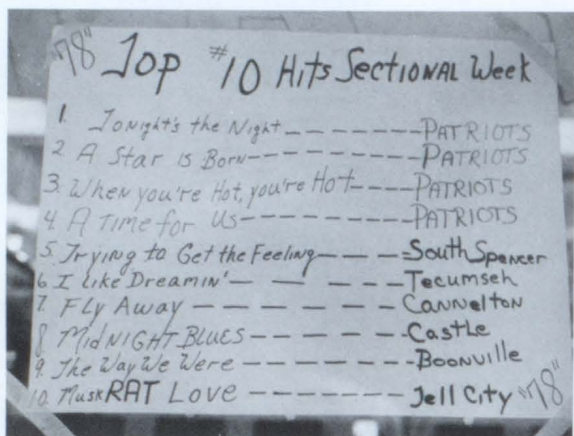 "78" Top #10 Hits Sectional Week
1. Tonight's the Night - - - - - - - PATRIOTS
2. A Star is Born - - - - - - - - PATRIOTS
3. When you're Hot, you're Hot - - - - PATRIOTS
4. A Time for Us - - - - - - - - - PATRIOTS
5. Trying to Get the Feeling - - - - South Spencer
6. I Like Dreamin' - - - - - - Tecumseh
7. Fly Away - - - - - - - Cannelton
8. MidNIGHT BLUES - - - - - - Castle
9. The Way We Were - - - - - - Boonville
10. MuskRAT Love - - - - - - - Jell City "78"